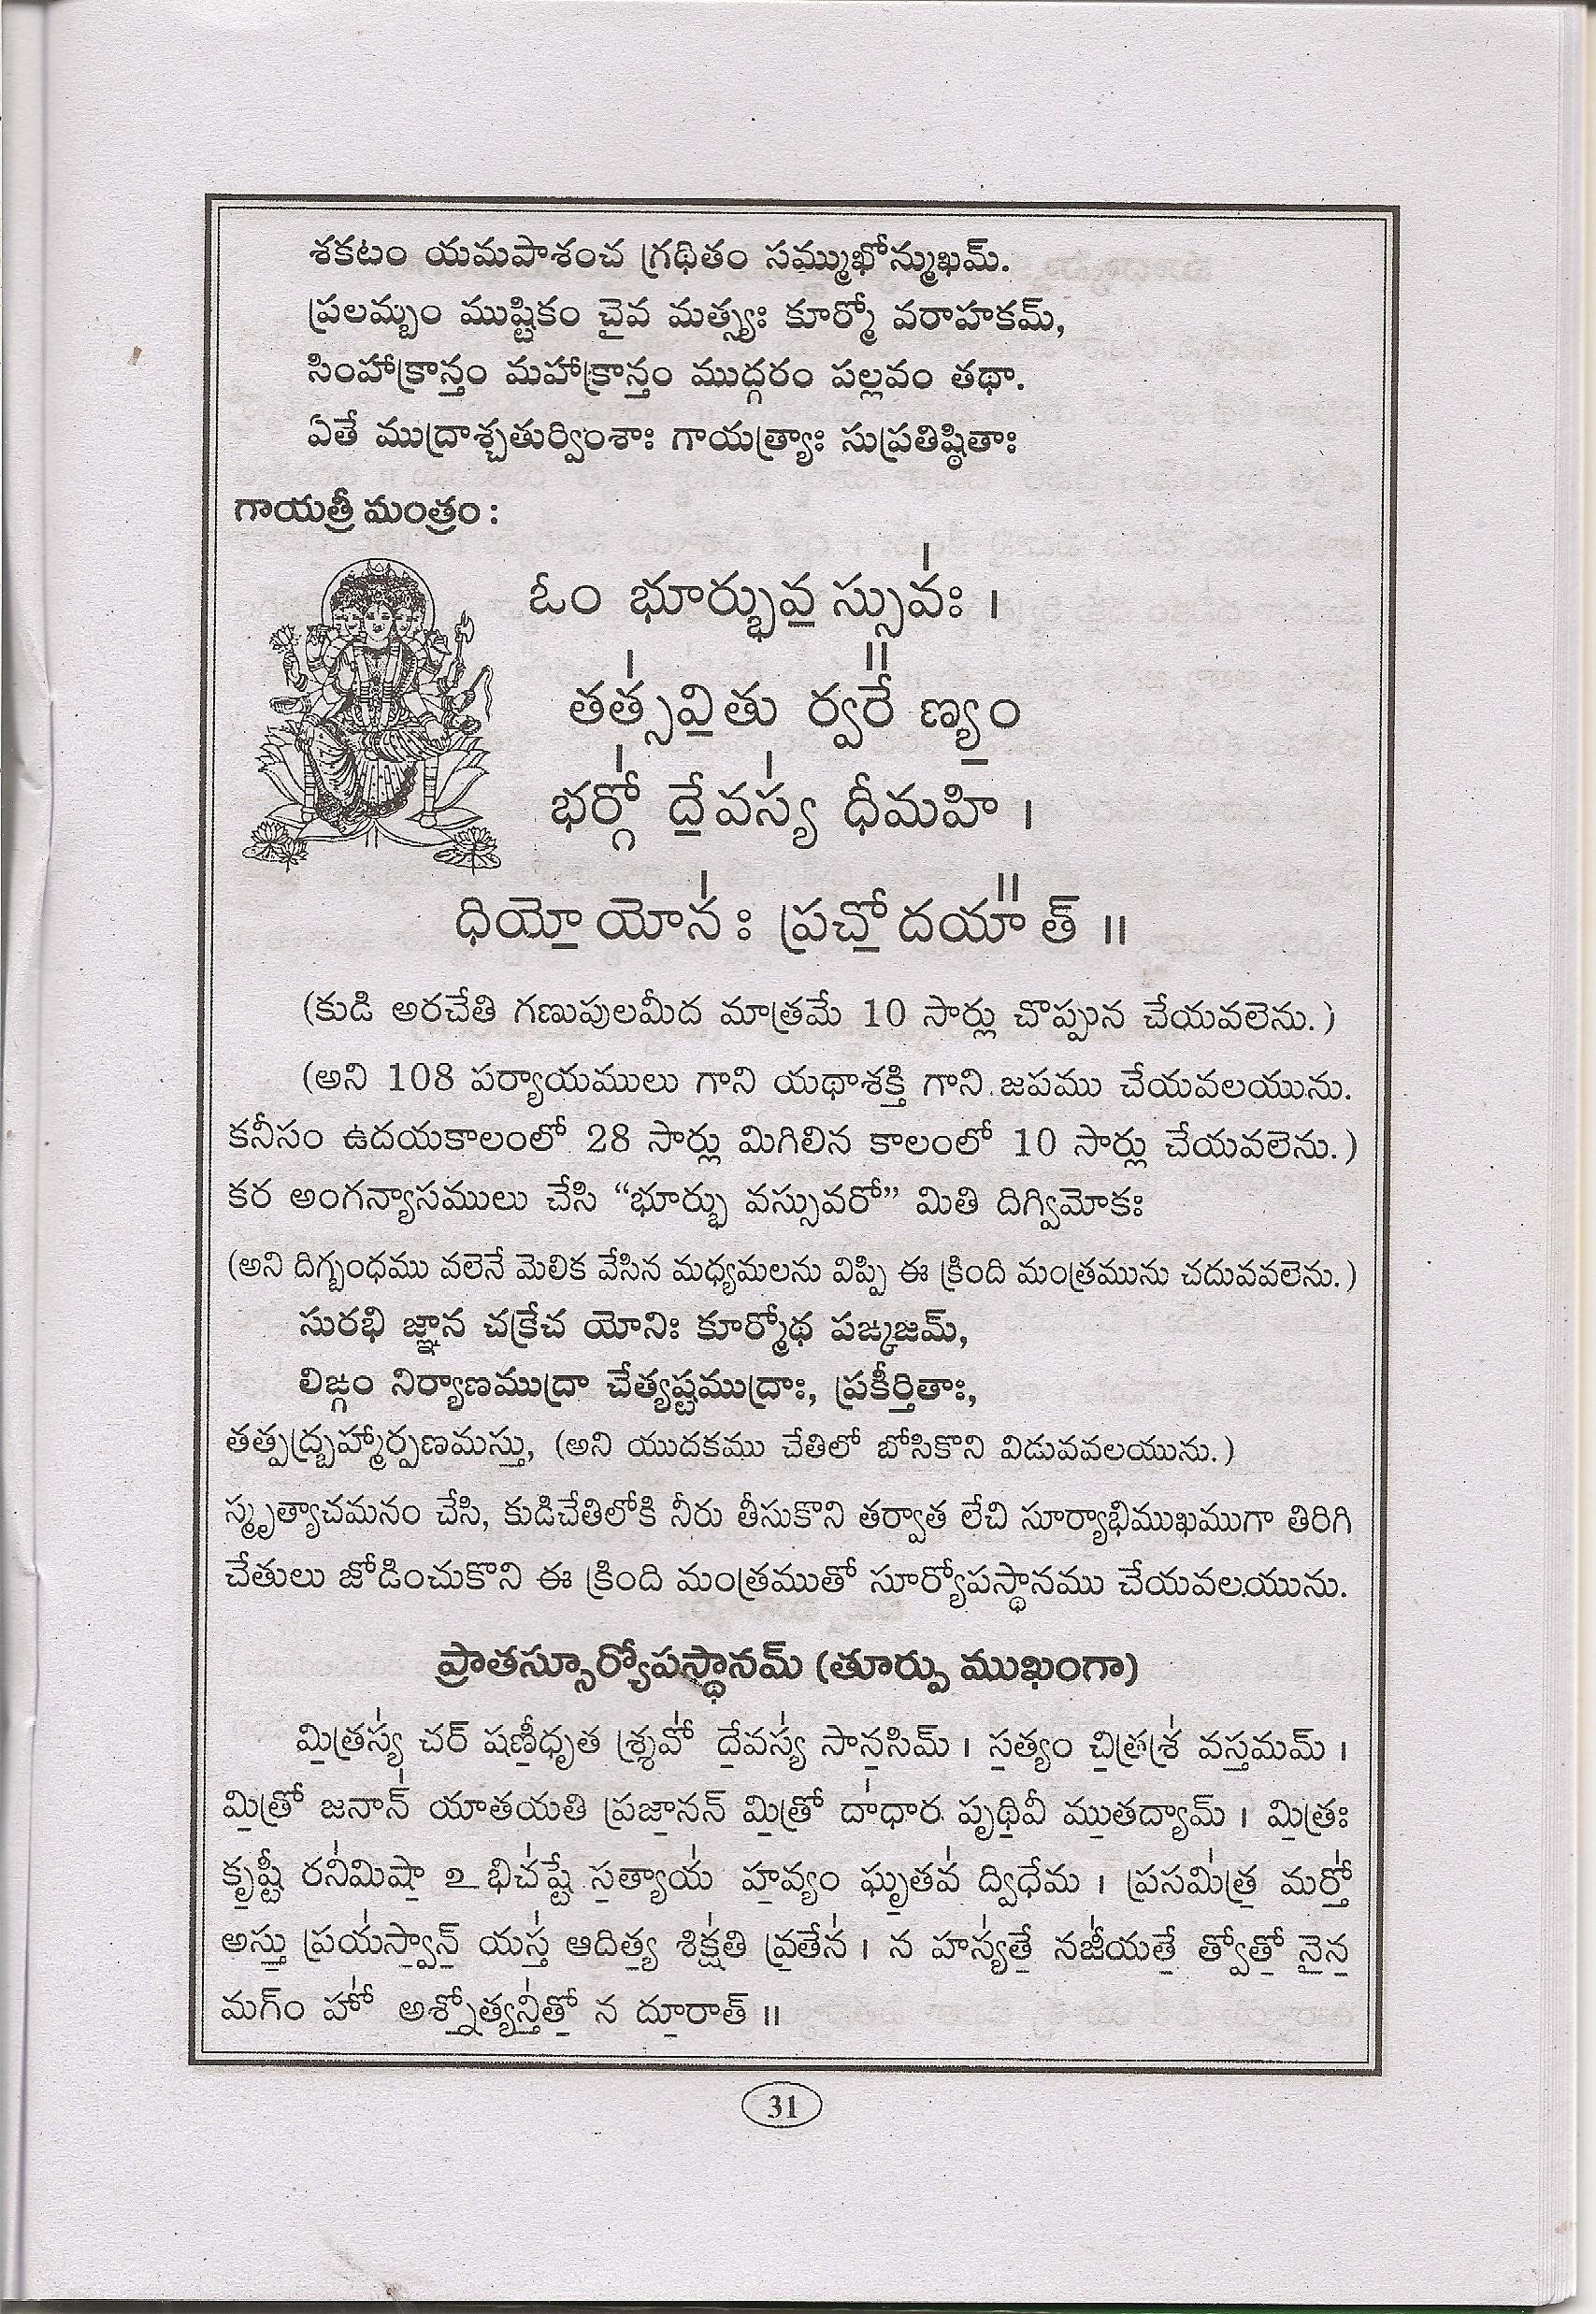 శకటం యమపాశంచ గ్రథితం సమ్ముఖోన్ముఖమ్.
ప్రలమ్బం ముష్టికం చైవ మత్స్యః కూర్మో వరాహకమ్,
సింహాక్రాన్తం మహాక్రాన్తం ముద్గరం పల్లవం తథా.
ఏతే ముద్రాశ్చతుర్వింశాః గాయత్ర్యాః సుప్రతిష్ఠితాః
గాయత్రీ మంత్రం :
ఓం భూర్భువ॒ స్సువ॑ః ।
తత్స॑వి॒తు ర్వరే᳚ ణ్యం॒
భర్గో॑ దే॒వస్య॑ ధీమహి ।
ధియో॒ యోన॑ః ప్రచో॒ దయా᳚ త్ ॥
(కుడి అరచేతి గణుపులమీద మాత్రమే 10 సార్లు చొప్పున చేయవలెను.)
(అని 108 పర్యాయములు గాని యథాశక్తి గాని జపము చేయవలయును.
కనీసం ఉదయకాలంలో 28 సార్లు మిగిలిన కాలంలో 10 సార్లు చేయవలెను.)
కర అంగన్యాసములు చేసి “భూర్భు వస్సువరో” మితి దిగ్విమోకః
(అని దిగ్బంధము వలెనే మెలిక వేసిన మధ్యమలను విప్పి ఈ క్రింది మంత్రమును చదువవలెను.)
సురభి జ్ఞాన చక్రేచ యోనిః కూర్మోథ పఙ్కజమ్,
లిఙ్గం నిర్యాణముద్రా చేత్యష్టముద్రాః, ప్రకీర్తితాః,
తత్పద్బ్రహ్మార్పణమస్తు, (అని యుదకము చేతిలో బోసికొని విడువవలయును.)
స్మృత్యాచమనం చేసి, కుడిచేతిలోకి నీరు తీసుకొని తర్వాత లేచి సూర్యాభిముఖముగా తిరిగి
చేతులు జోడించుకొని ఈ క్రింది మంత్రముతో సూర్యోపస్థానము చేయవలయును.
ప్రాతస్సూర్యోపస్థానమ్ (తూర్పు ముఖంగా)
మి॒త్రస్య॑ చర్ షణీ॒ధృత శ్శ్రవో॑ దే॒వస్య॑ సాన॒సిమ్ । స॒త్యం చి॒త్రశ్ర॑ వస్త॒మమ్ ।
మి॒త్రో జనాన్॑ యాతయతి ప్రజా॒నన్ మి॒త్రో దా॑ధార పృథి॒వీ ము॒తద్యామ్ । మి॒త్రః
కృ॒ష్టీ రని॑మిషా॒ ఽ భిచ॑ష్టే స॒త్యాయ॑ హ॒వ్యం ఘృ॒తవ॑ ద్విధేమ । ప్రసమి॑త్ర॒ మర్తో॑
అస్తు॒ ప్రయ॑స్వా॒న్॒ యస్త॑ ఆదిత్య॒ శిక్ష॑తి వ్ర॒తేన॑ । న హన్య॑తే॒ నజీ॑యతే॒ త్వోతో॒ నైన॒
మగ్ం హో॑ అశ్నో॒త్యన్తి॑తో॒ న దూ॒రాత్ ॥
31